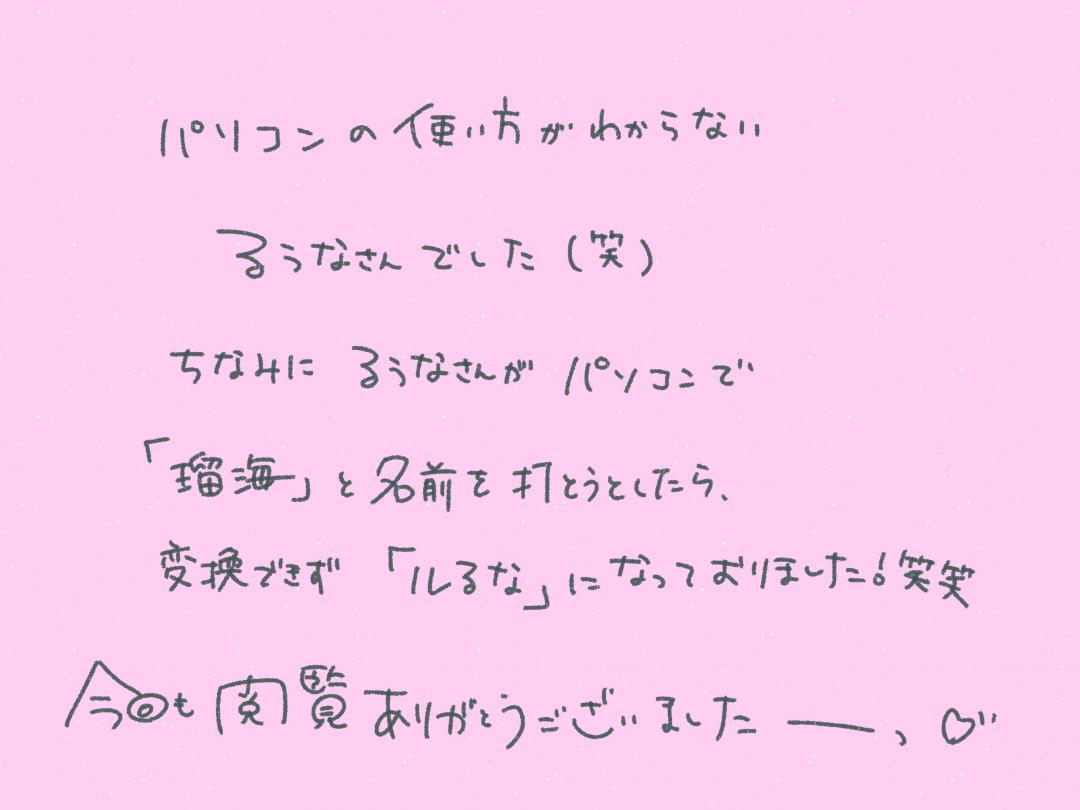 パソコンの使い方がわからない
るぅなさんでした(笑)
ちなみに るぅなさんが パソコンで
「瑠海」と名前を打とうとしたら、
変換できず「ルるな」になっておりました!笑笑
今回も閲覧ありがとうございましたー、♡"